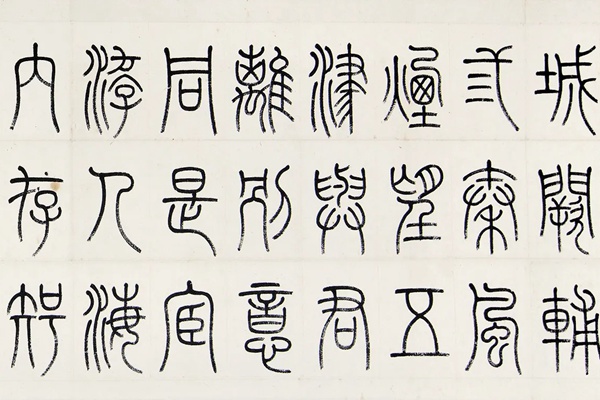 城闕輔
弎秦風
煙望五
津與君
離別意
同是宦
游人海
內存知